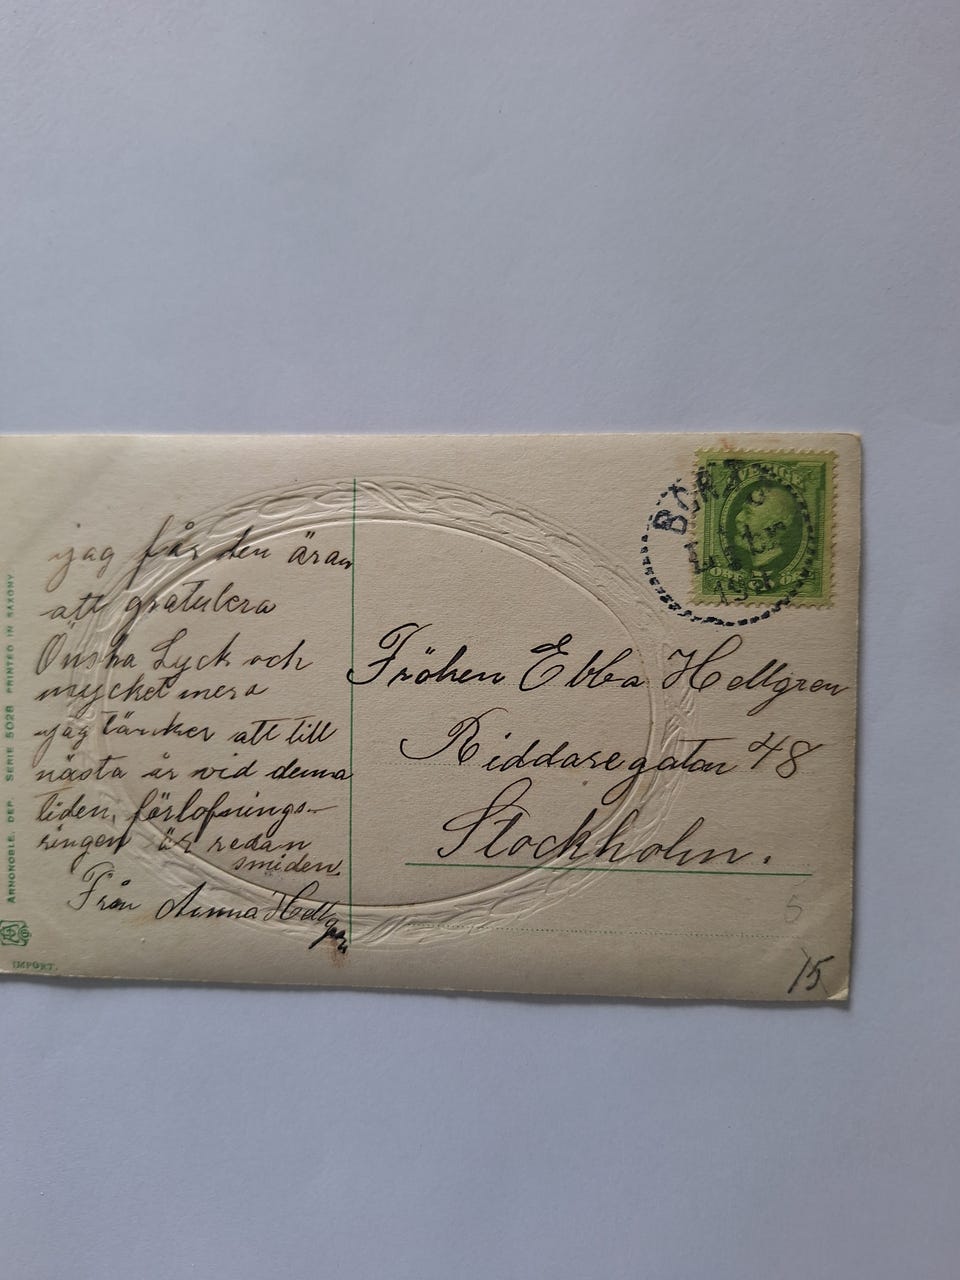 jag får den äran
att gratulera
Önska Lyck och
mycket mera
jag tänker att till
nästa år vid denna
tiden, förlofnings-
ringen är redan
smiden.
Från Anna Hellgren
Fröken Ebba Hellgren
Riddaregatan 48
Stockholm.
SVERIGE
5
15
ARNONOBLE. DEP. SERIE 5028 PRINTED IN SAXONY
IMPORT.